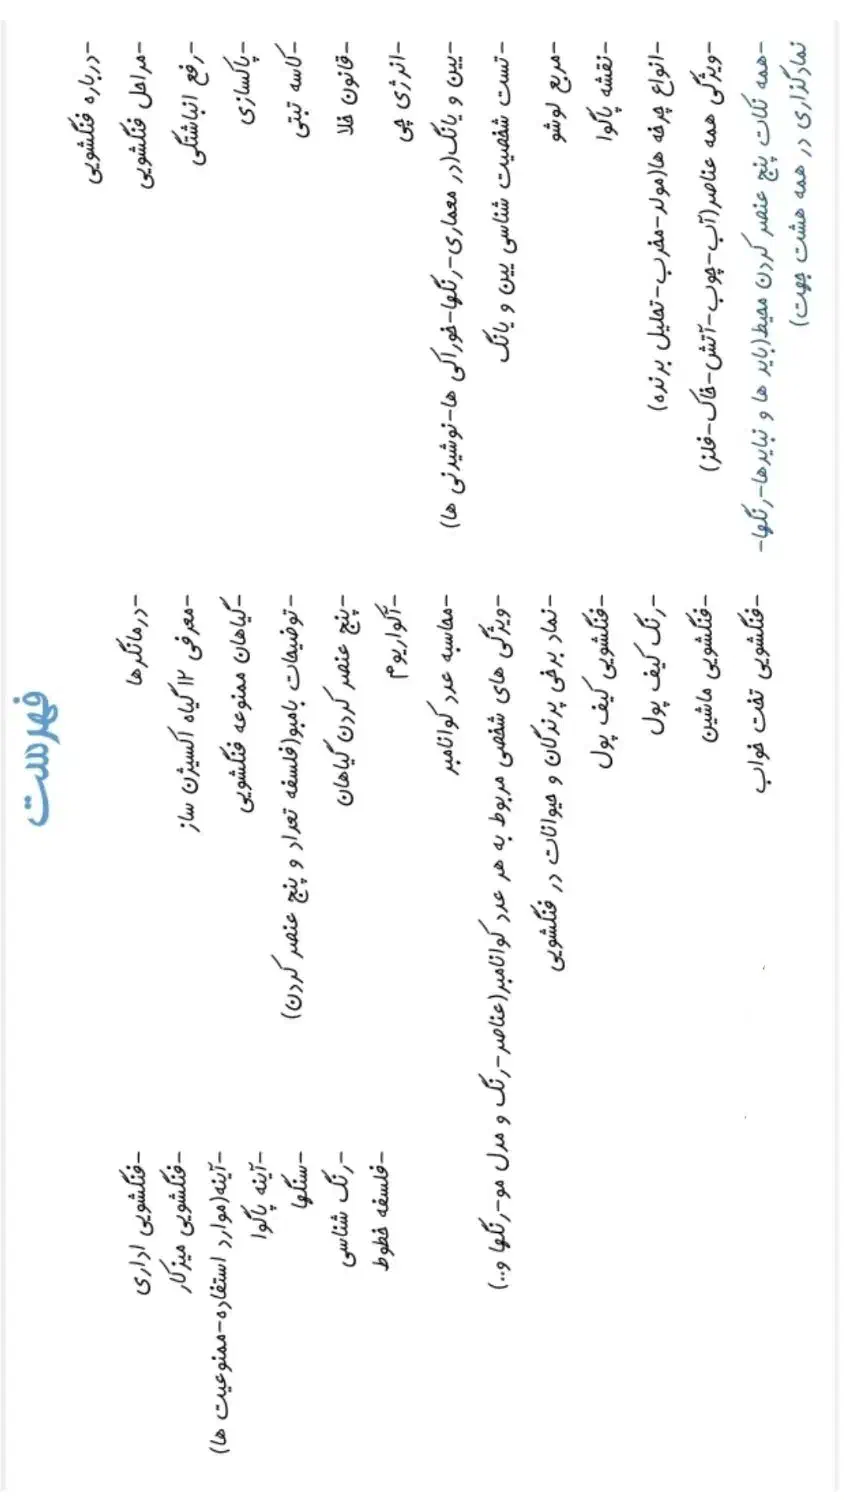 فهرست
-درباره فنگشویی
-مراحل فنگشویی
-رفع انباشتگی
-پاکسازی
-کاسه تبتی
-قانون خلا
-انرژی چی
-یین و یانگ(در معماری-رنگها-خوراکی ها-نوشیدنی ها)
-تست شخصیت شناسی یین و یانگ
-مربع لوشو
-نقشه پاکوا
-انواع چرخه ها(مولد-مخرب-تحلیل برنده)
-ویژگی همه عناصر(آب-چوب-آتش-خاک-فلز)
-همه نکات پنج عنصر کردن محیط(باید ها و نبایدها-رنگها-
نمادگذاری در همه هشت جهت)
-درمانگرها
-معرفی ۱۲ گیاه اکسیژن ساز
-گیاهان ممنوعه فنگشویی
-توضیحات بامبو(فلسفه تعداد و پنج عنصر کردن)
-پنج عنصر کردن گیاهان
-آکواریوم
-محاسبه عدد کوانامبر
-ویژگی های شخصی مربوط به هر عدد کوانامبر(عناصر-رنگ و مدل مو-رنگها و..)
-نماد برخی پرندگان و حیوانات در فنگشویی
-فنگشویی کیف پول
-رنگ کیف پول
-فنگشویی ماشین
-فنگشویی تخت خواب
-فنگشویی اداری
-فنگشویی میزکار
-آینه(موارد استفاده-ممنوعیت ها)
-آینه پاکوا
-سنگها
-رنگ شناسی
-فلسفه خطوط